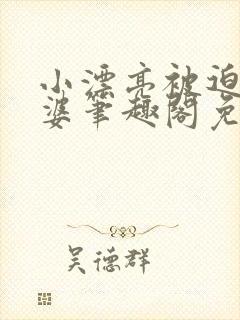 小漂亮被迫
婆笔趣阁免
吴德群